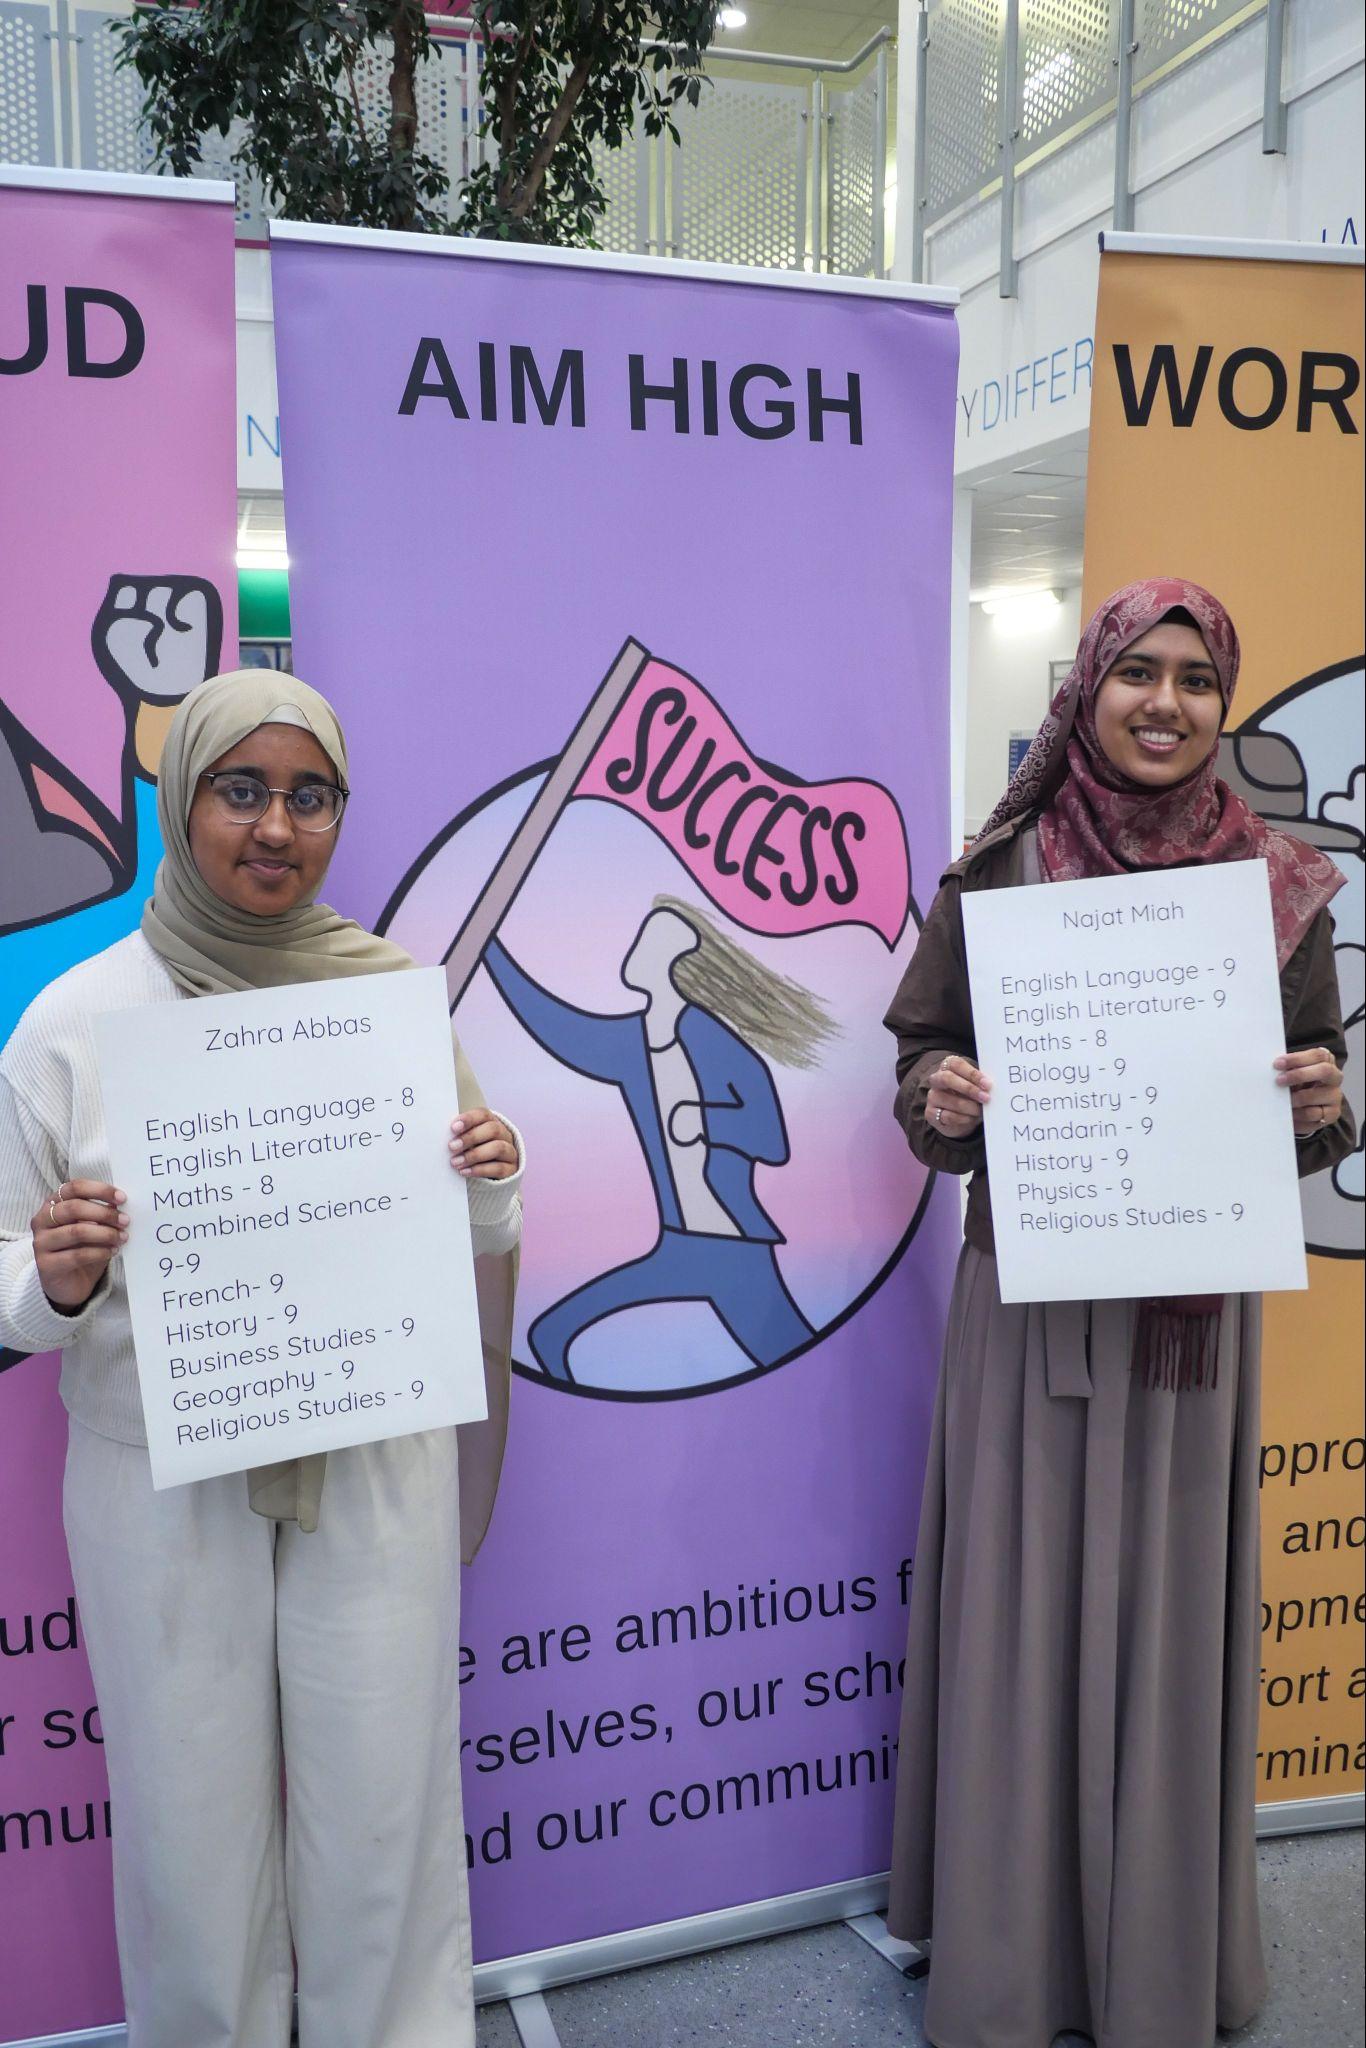 UD
AIM HIGH
WOR
N
YDIFFER
SUCCESS
Zahra Abbas
English Language - 8
English Literature- 9
Maths - 8
Combined Science -
9-9
French- 9
History - 9
Business Studies - 9
Geography - 9
Religious Studies - 9
Najat Miah
English Language - 9
English Literature- 9
Maths - 8
Biology - 9
Chemistry - 9
Mandarin - 9
History - 9
Physics - 9
Religious Studies - 9
ud
r sc
mun
e are ambitious f
rselves, our scho
nd our communi
ppro
and
opme
fort a
rmina